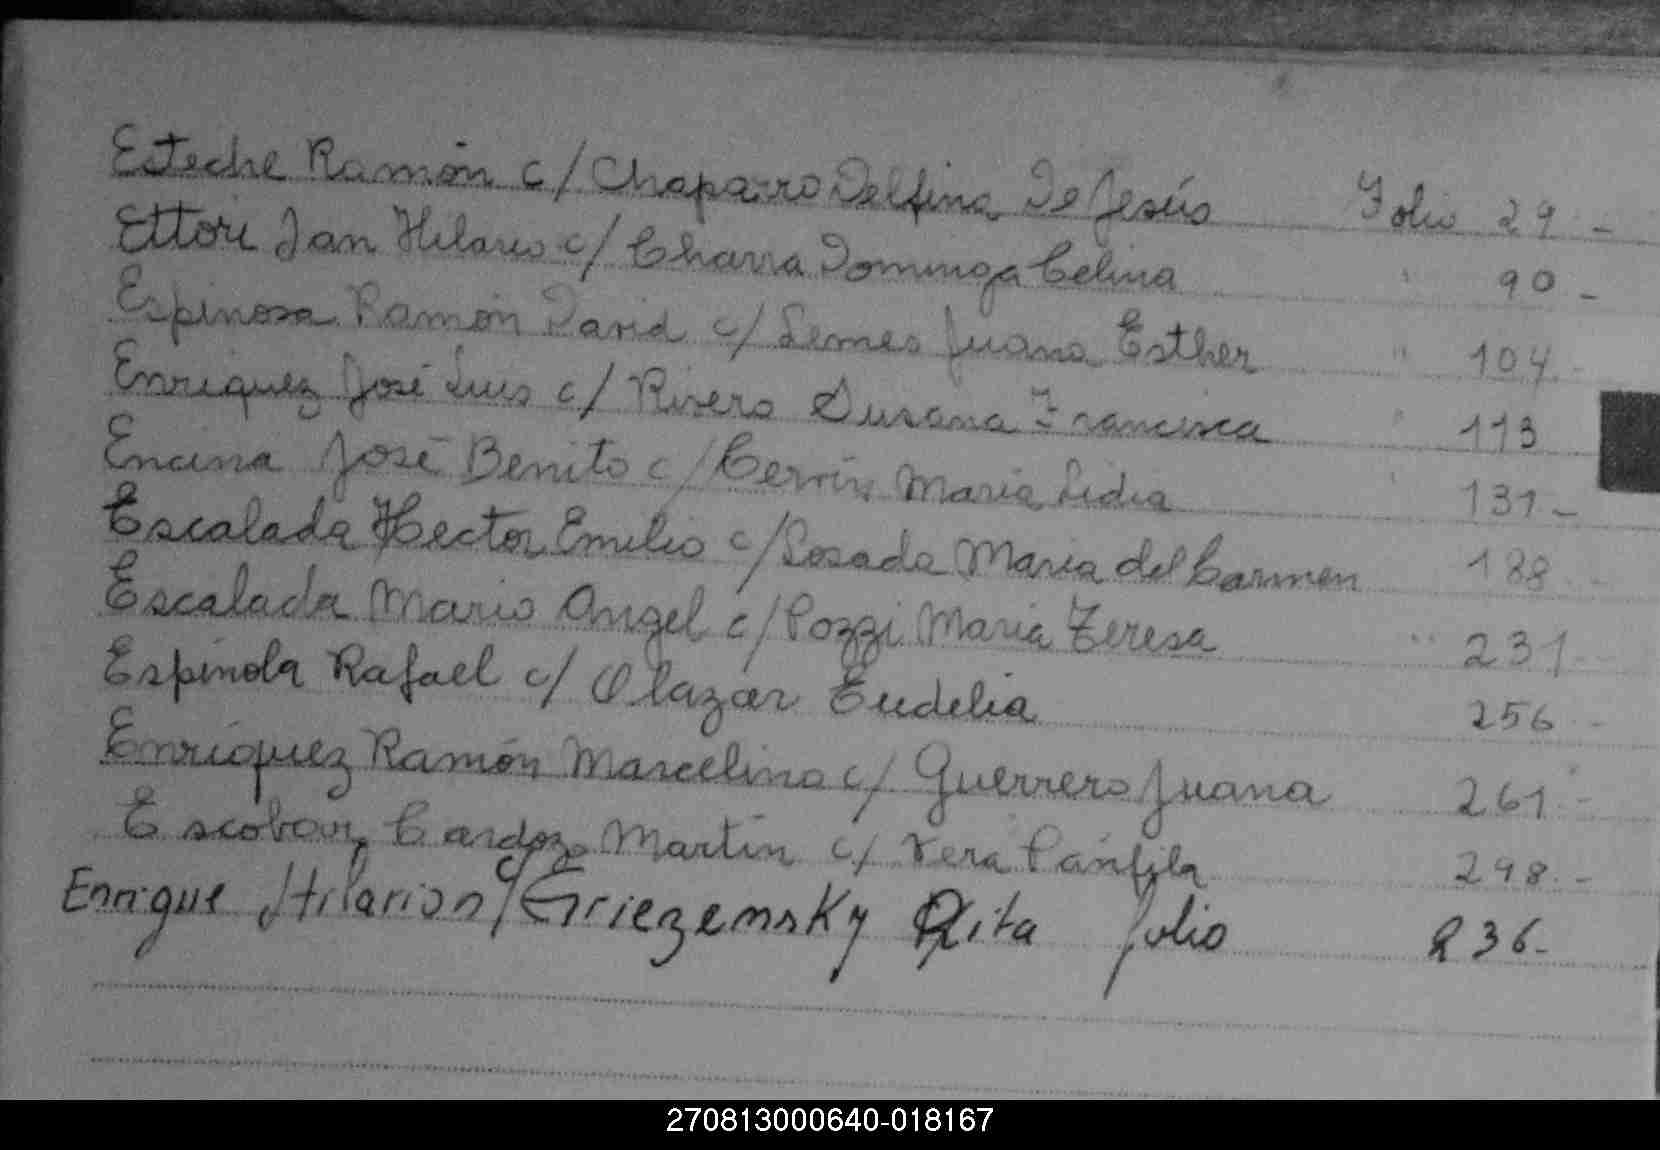 Esteche Ramón c/ Chaparro Delfina De Jesús Folio 29 -
Ettori Jan Hilario c/ Charra Dominga Celina " 90 -
Espinosa Ramón David c/ Lemes Juana Esther " 104 -
Enriquez José Luis c/ Rivero Susana Francisca " 113
Encina José Benito c/ Maria Lidia " 131 -
Escalada Hector Emilio c/ Losada Maria del Carmen 188
Escalada Mario Angel c/ Pozzi Maria Teresa " 231 -
Espinola Rafael c/ Olazar Eudelia 256 -
Enriquez Ramón Marcelino c/ Guerrero Juana 261 -
Escobar Cardozo Martin c/ Vera Pánfila 298 -
Enrique Hilarion c/ Griezemsky Rita folio 236-
270813000640-018167